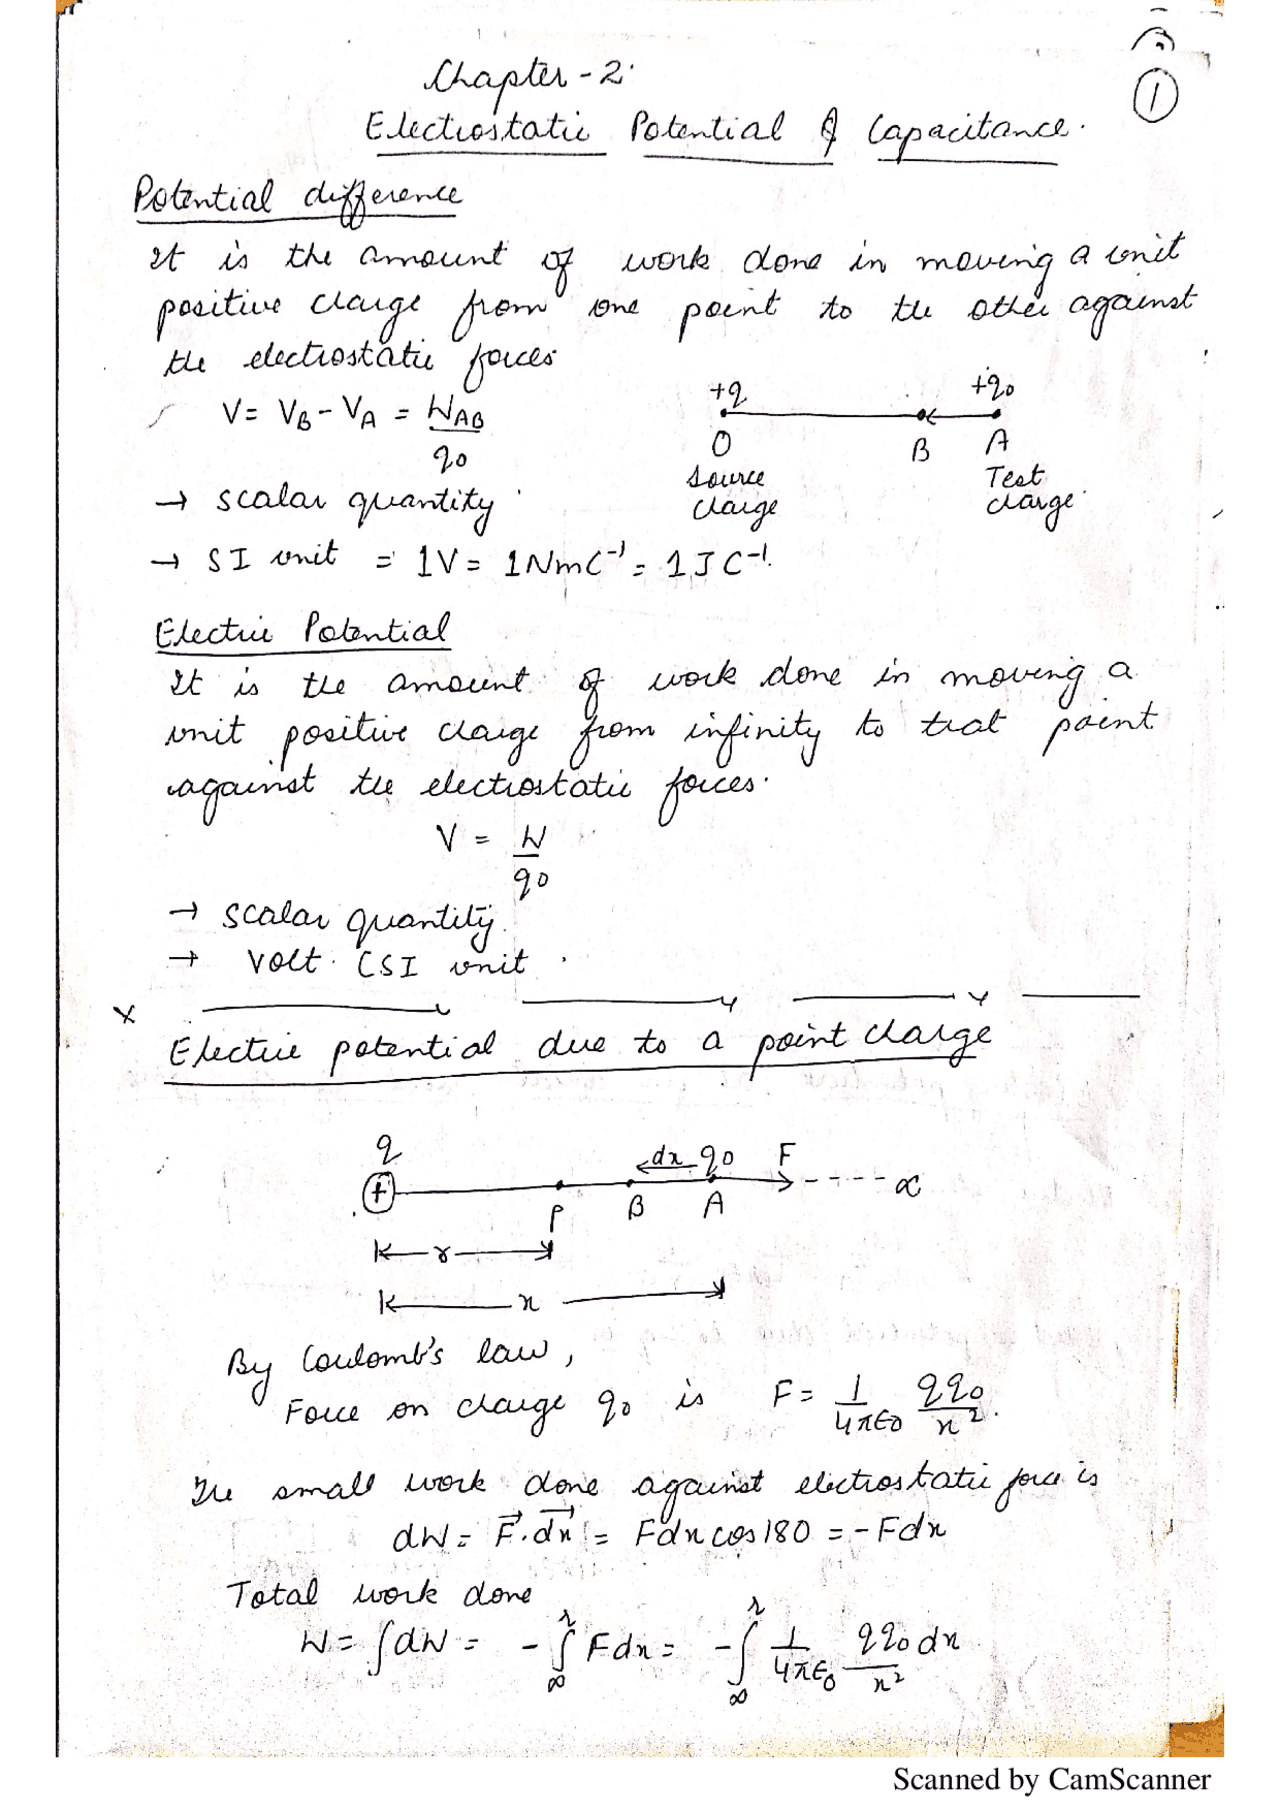 ①
Chapter - 2.
Electrostatic Potential & Capacitance.
Potential difference
It is the amount of work done in moving a unit
positive charge from one point to the other against
the electrostatic forces
V = V_B - V_A = W_AB / q0
+q +q0
O B A
Source charge
Test charge
→ scalar quantity
→ SI unit = 1V = 1NmC⁻¹ = 1JC⁻¹.
Electric Potential
It is the amount of work done in moving a
unit positive charge from infinity to that point
against the electrostatic forces.
V = W / q0
→ scalar quantity.
→ volt. (SI unit
x
Electric potential due to a point charge
q dx q0 F
+ ∝
P B A
r
x
By Coulomb's law,
Force on charge q0 is F = 1/4πε0 qq0/x².
The small work done against electrostatic force is
dW = F⃗.dx⃗ = Fdxcos180 = -Fdx
Total work done
W = ∫dW = -∫_∞^r Fdx = -∫_∞^r 1/4πε0 qq0/x² dx
Scanned by CamScanner